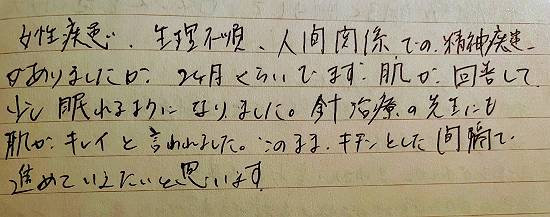 女性疾患、生理不順、人間関係での精神疾患
がありましたが、2ヶ月くらいでますが肌が回善して
少し眠れるようになりました。針治療の先生にも
肌がキレイと言われました。このまま、キチンとした間隔で
進めていきたいと思います